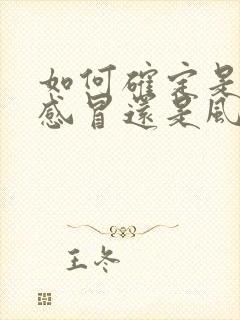 如何確定是
感冒還是風
王冬